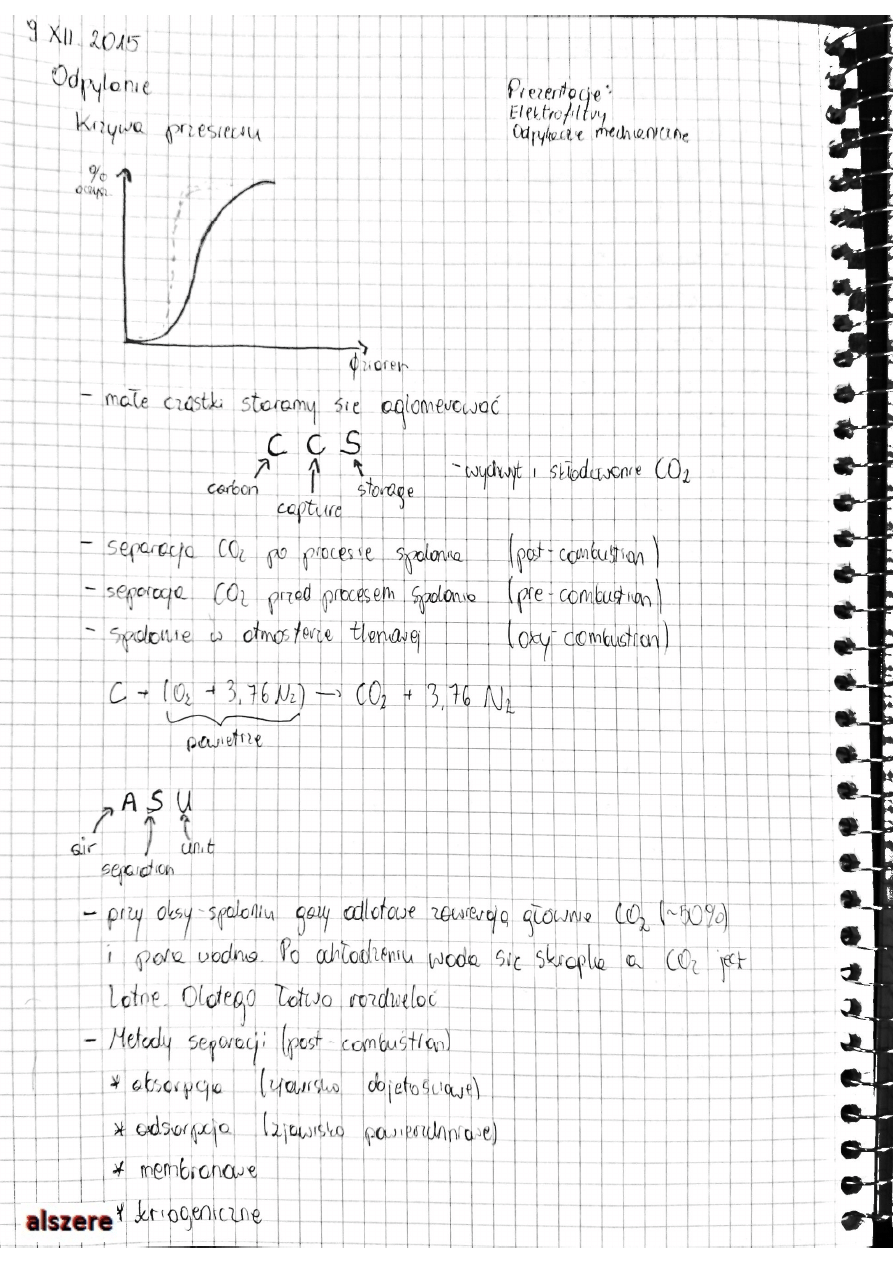 9 XII 2015
Odpylanie
Prezentacje:
Elektrofiltry
Odpylacze mechaniczne
Krzywa przesiewu
%
oczysz.
ϕ ziaren
- małe cząstki staramy się aglomerować
C C S
carbon
capture
storage
- wychwyt i składowanie CO₂
- separacja CO₂ po procesie spalania (post-combustion)
- separacja CO₂ przed procesem spalania (pre-combustion)
- spalanie w atmosferze tlenowej (oxy-combustion)
C + (O₂ + 3,76 N₂) → CO₂ + 3,76 N₂
powietrze
A S U
air
separation
unit
- przy oksy-spalaniu gazy odlotowe zawierają głównie CO₂ (~50%)
i para wodna. Po ochłodzeniu woda się skrapla a CO₂ jest
lotne. Dlatego łatwo rozdzielać
- Metody separacji (post combustion)
* absorpcja (zjawisko objętościowe)
* adsorpcja (zjawisko powierzchniowe)
* membranowe
* kriogeniczne
alszere